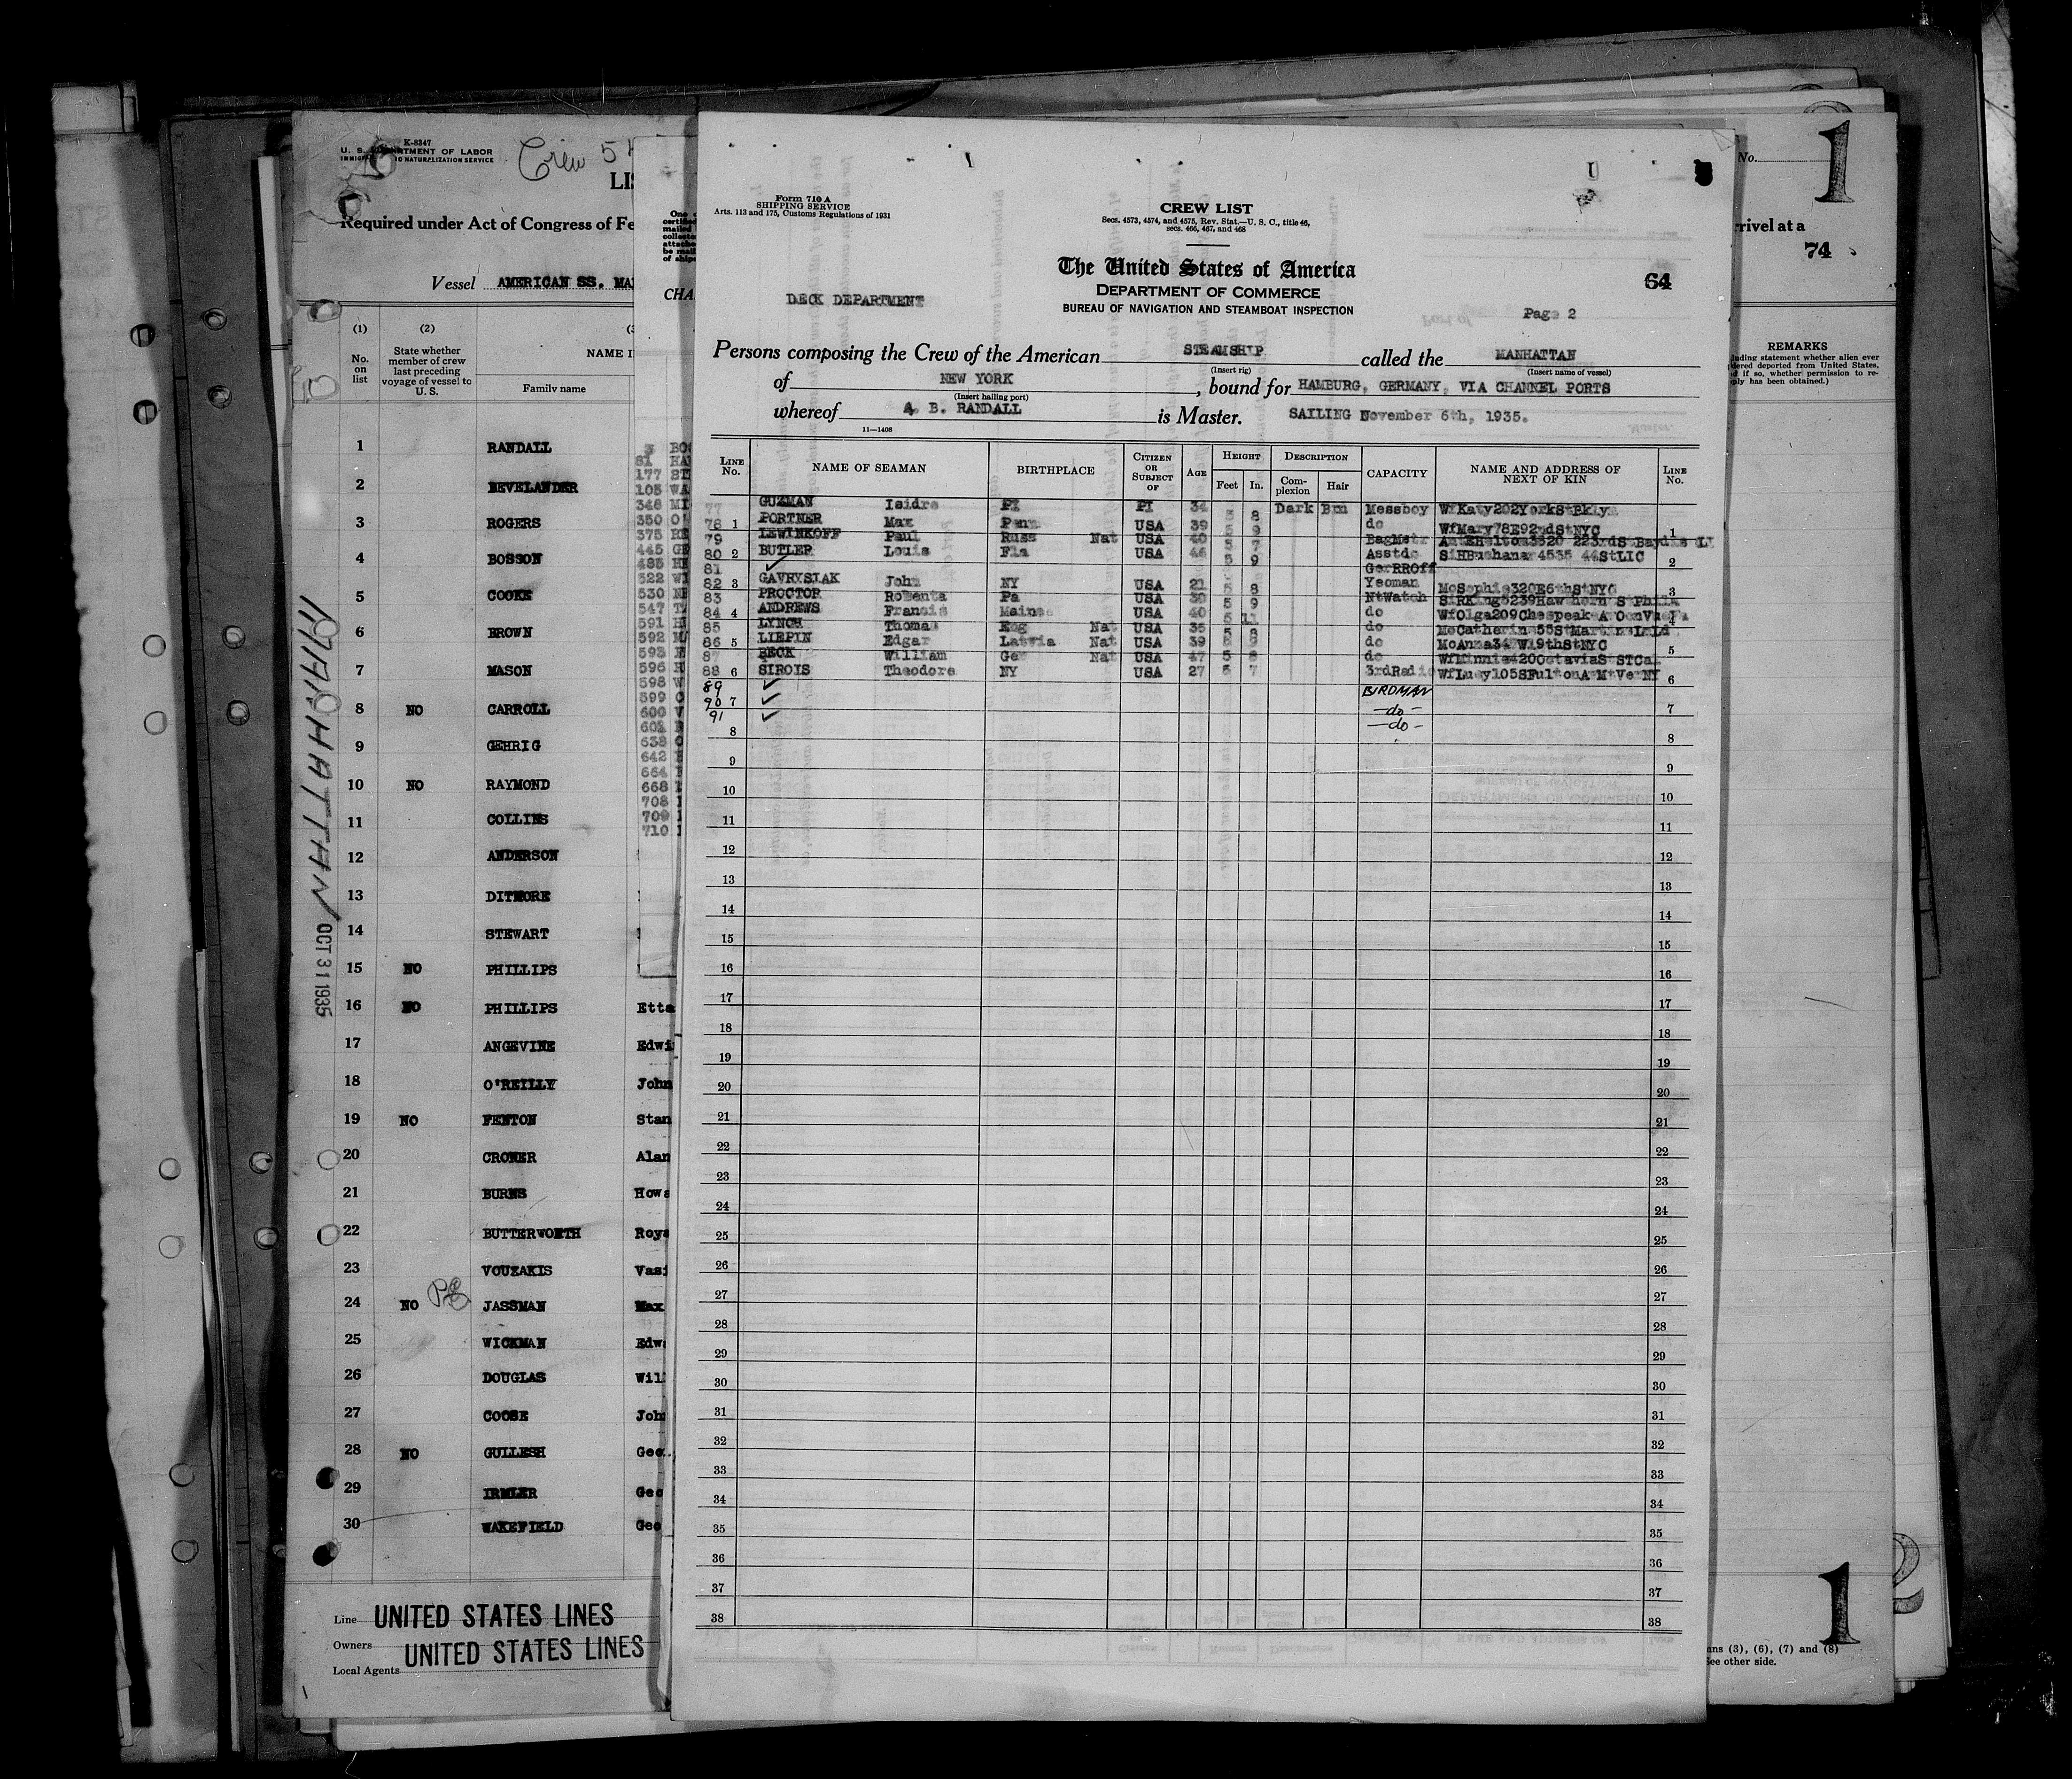 K-8347
U. S. DEPARTMENT OF LABOR
Crew
LIS
Required under Act of Congress of Fe
Vessel AMERICAN SS. MA
(1) (2)
No. on list
State whether member of crew last preceding voyage of vessel to U. S.
NAME I
Family name
1 RANDALL
2 BEVELANDER
3 ROGERS
4 BOSSON
5 COOKE
6 BROWN
7 MASON
8 NO CARROLL
9 GEHRIG
10 NO RAYMOND
11 COLLINS
12 ANDERSON
13 DITMORE
14 STEWART
15 NO PHILLIPS
16 NO PHILLIPS Etta
17 ANGEVINE Edwi
18 O'REILLY John
19 NO FENTON Stan
20 CROMER Alan
21 BURNS Howa
22 BUTTERWORTH Roya
23 VOUZAKIS Vasi
24 NO JASSMAN Max
25 WICKMAN Edw
26 DOUGLAS Wil
27 COOSE Joh
28 NO GULLESH Geo
29 IRMLER Geo
30 WAKEFIELD Geo
Line UNITED STATES LINES
Owners UNITED STATES LINES
Local Agents
MANHATTAN/ OCT 31 1935
CHA
Form 710 A
SHIPPING SERVICE
Arts. 113 and 175, Customs Regulations of 1931
CREW LIST
Secs. 4573, 4574, and 4575, Rev. Stat.—U. S. C., title 46,
secs. 466, 467, and 468
The United States of America
DEPARTMENT OF COMMERCE
BUREAU OF NAVIGATION AND STEAMBOAT INSPECTION
64
DECK DEPARTMENT
Page 2
Persons composing the Crew of the American STEAMSHIP called the MANHATTAN
(Insert rig) (Insert name of vessel)
of NEW YORK, bound for HAMBURG, GERMANY, VIA CHANNEL PORTS
(Insert hailing port)
whereof A. B. RANDALL is Master. SAILING November 6th, 1935.
11—1408
LINE No. NAME OF SEAMAN BIRTHPLACE CITIZEN OR SUBJECT OF AGE HEIGHT Feet In. DESCRIPTION Complexion Hair CAPACITY NAME AND ADDRESS OF NEXT OF KIN LINE No.
77 GUZMAN Isidro PI PI 34 5 8 Dark Brn Messboy WfKaty202YorkStBklyn
78 1 PORTNER Max Penn USA 39 5 9 do WfMary78E92ndStNYC 1
79 LEWINKOFF Paul Russ Nat USA 40 5 7 BagMstr
80 2 BUTLER Louis Fla USA 46 5 9 Asstdo SiHBuchanan4535 44StLIC 2
81 ✓ GerRROff
82 3 GAVRYSIAK John NY USA 21 5 8 Yeoman MoSophie320E6thStNYC 3
83 PROCTOR Pa USA 30 5 9 NtWatch
84 4 ANDREWS Francis Maine USA 40 5 11 do 4
85 LYNCH Thomas Eng Nat USA 35 5 8 do
86 5 LIEPIN Edgar Latvia Nat USA 39 5 8 do MoAnna347W19thStNYC 5
87 BECK William Ger Nat USA 47 5 8 do
88 6 SIROIS Theodore NY USA 27 5 7 3rdRadio WfLucy105SFultonAvMtVerNY 6
89 ✓ BIRDMAN
90 7 ✓ —do— 7
91 ✓ —do—
8 8
9 9
10 10
11 11
12 12
13 13
14 14
15 15
16 16
17 17
18 18
19 19
20 20
21 21
22 22
23 23
24 24
25 25
26 26
27 27
28 28
29 29
30 30
31 31
32 32
33 33
34 34
35 35
36 36
37 37
38 38
No.
1
rrival at a
74
REMARKS
1
(3), (6), (7) and (8)
See other side.
2